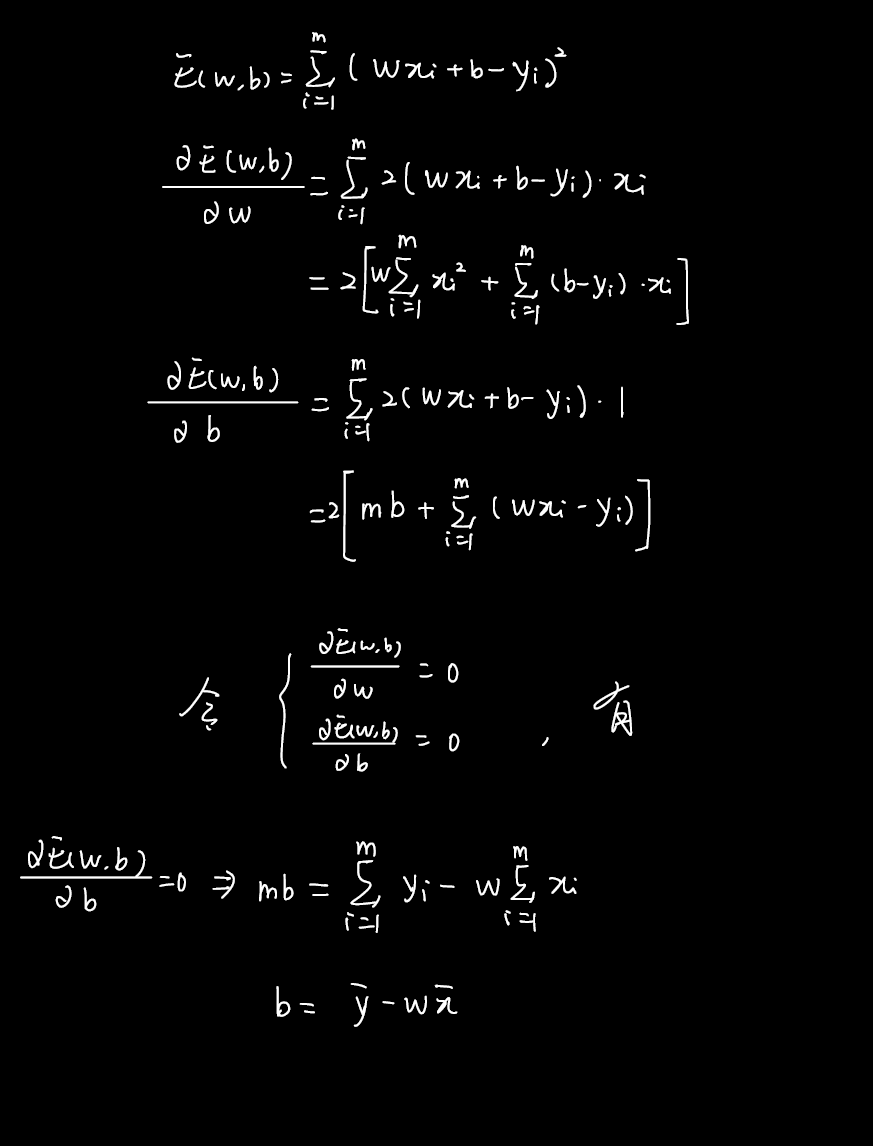 E(w,b) = ∑_{i=1}^{m} (wx_i + b - y_i)^2
∂E(w,b)/∂w = ∑_{i=1}^{m} 2(wx_i + b - y_i) · x_i
= 2[w∑_{i=1}^{m} x_i^2 + ∑_{i=1}^{m} (b - y_i) · x_i]
∂E(w,b)/∂b = ∑_{i=1}^{m} 2(wx_i + b - y_i) · 1
= 2[mb + ∑_{i=1}^{m} (wx_i - y_i)]
令 { ∂E(w,b)/∂w = 0
∂E(w,b)/∂b = 0 , 有
∂E(w,b)/∂b = 0 ⇒ mb = ∑_{i=1}^{m} y_i - w∑_{i=1}^{m} x_i
b = ȳ - wx̄